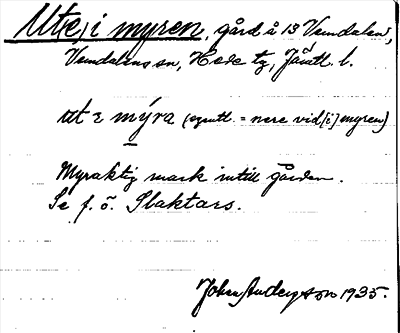 Ute, i myren, gård å 13 Vemdalen,
Vemdalens sn, Hede tg, Jämtl. l.
ut i mýra (egentl. = nere vid [i] myren)
Myraktig mark intill gården.
Se f. ö. Slaktars.
Johan Anderson 1935.